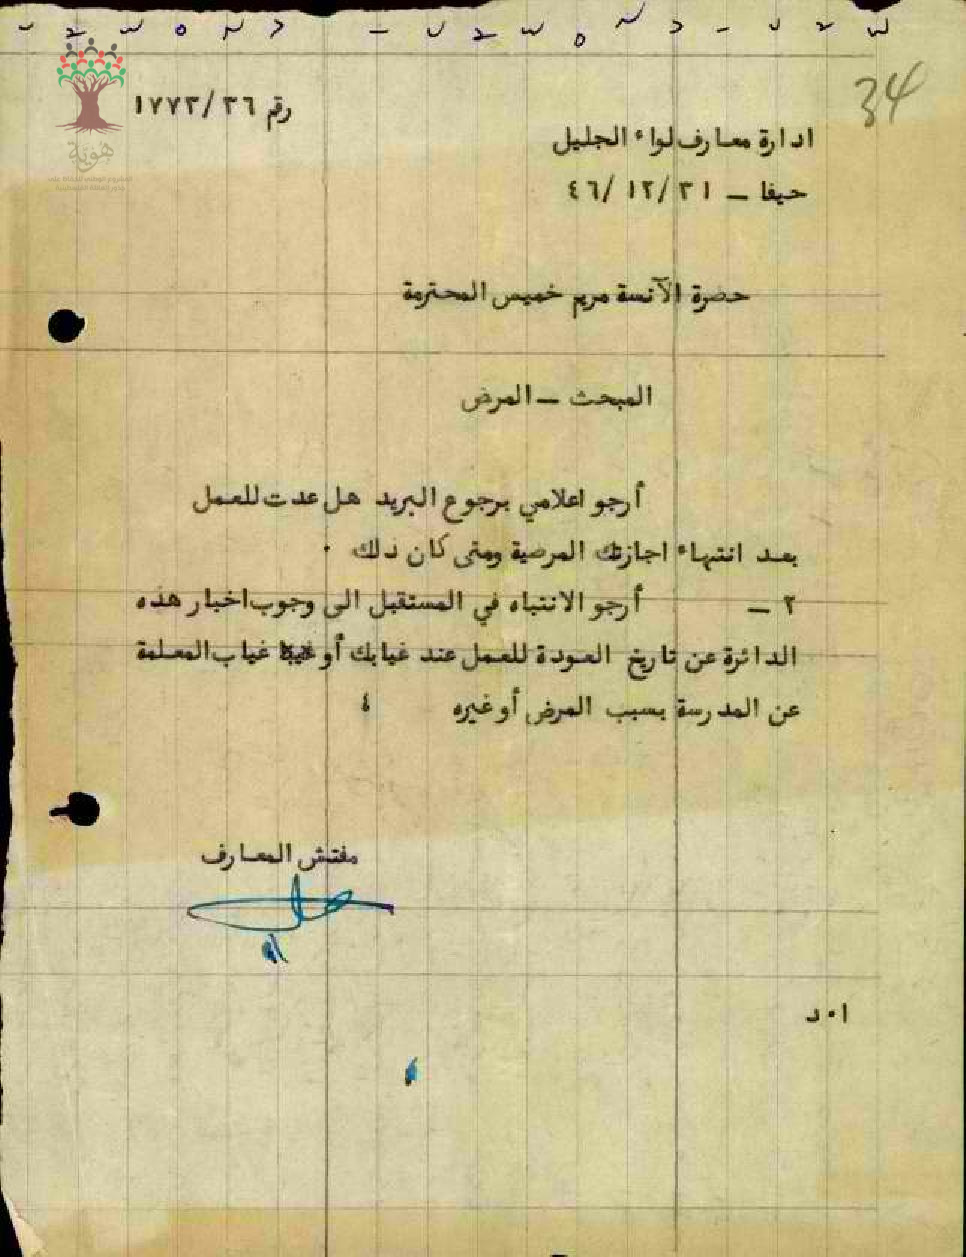 34
رقم ١٧٧٢/٣٦
هوية
ادارة معارف لواء الجليل
حيفا _ ٣١ /١٢ /٤٦
حضرة الآنسة مريم خميس المحترمة
المبحث _ المرض
أرجو اعلامي برجوع البريد هل عدت للعمل
بعد انتهاء اجازتك المرضية ومتى كان ذلك .
٢ _ أرجو الانتباه في المستقبل الى وجوب اخبار هذه
الدائرة عن تاريخ العودة للعمل عند غيابك أو غياب المعلمة
عن المدرسة بسبب المرض أو غيره ؛
مفتش المعارف
ا٠د